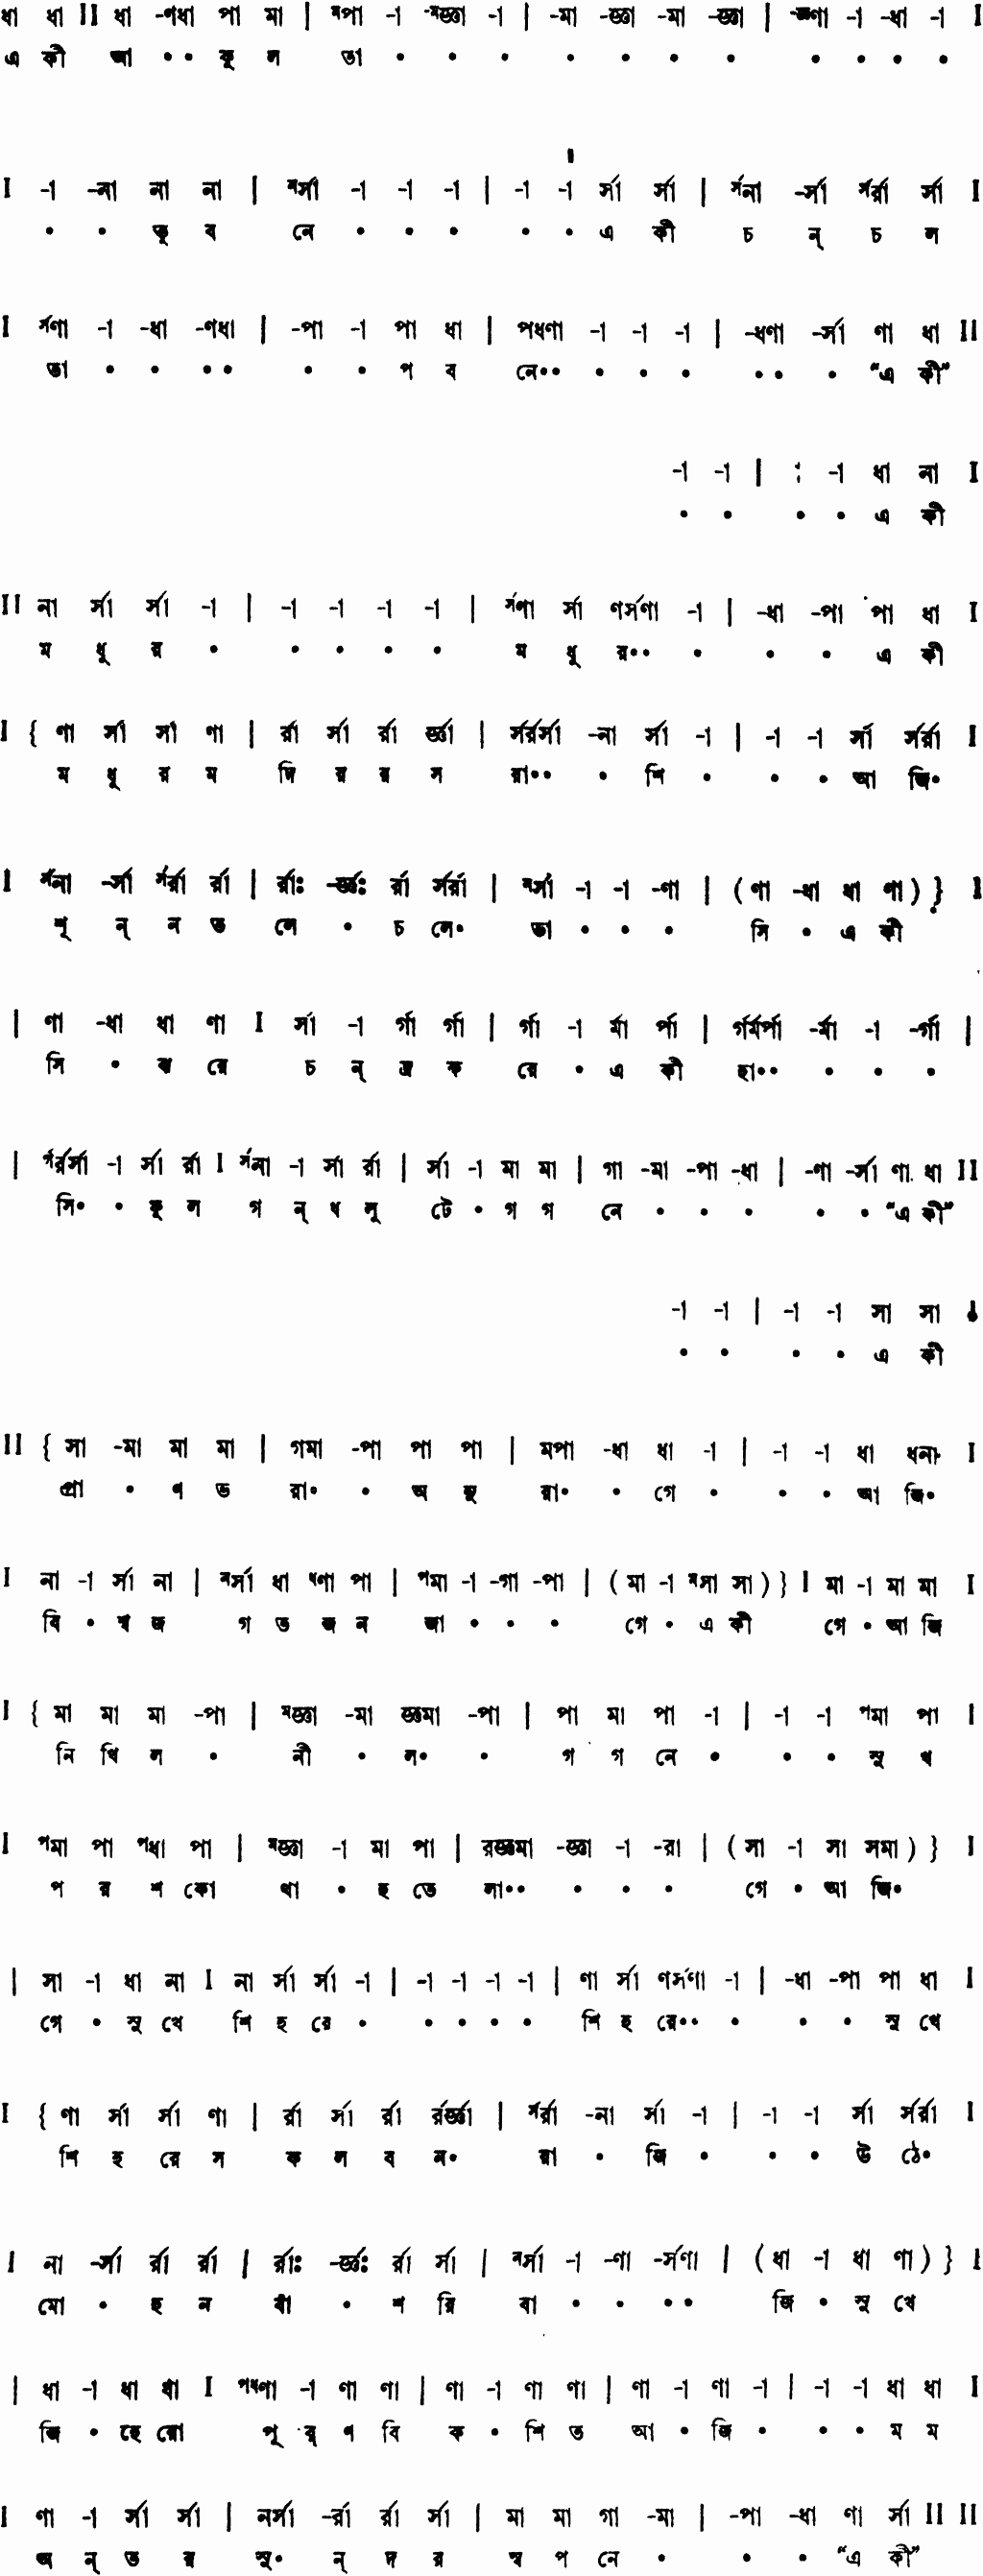 ধা ধা II ধা -ণধা পা মা | ᵐপা -া -ᵐজ্ঞা -া | -মা -জ্ঞা -মা -জ্ঞা | -ᵐণা -া -ধা -া I
এ কী আ • • কু ল তা • • • • • • • • • • •
I -া -না না না | ⁿর্সা -া -া -া | -া -া র্সা র্সা | র্সনা -র্সা র্সর্রা র্সা I
• • ভু ব নে • • • • • এ কী চ ন্ চ ল
I র্সণা -া -ধা -ণধা | -পা -া পা ধা | পধণা -া -া -া | -ধণা -র্সা ণা ধা II
তা • • • • • • প ব নে•• • • • • • • “এ কী”
-া -া | -া -া ধা না I
• • • • এ কী
II না র্সা র্সা -া | -া -া -া -া | র্সণা র্সা ণর্সণা -া | -ধা -পা পা ধা I
ম ধু র • • • • • ম ধু র•• • • • এ কী
I { ণা র্সা র্সা ণা | র্রা র্সা র্রা র্জ্ঞা | র্সর্রর্সা -না র্সা -া | -া -া র্সা র্সর্রা I
ম ধু র ম দি র র স রা•• • শি • • • আ জি•
I র্সনা -র্সা র্সর্রা র্রা | র্রাঃ -র্জ্ঞঃ র্রা র্সর্রা | নর্সা -া -া -ণা | (ণা -ধা ধা ণা) } I
শূ ন্ ন ত লে • চ লে• ভা • • • সি • এ কী
| ণা -ধা ধা ণা I র্সা -া র্গা র্গা | র্গা -া র্মা র্পা | র্গর্মর্পা -র্মা -া -র্গা |
সি • ঝ রে চ ন্ দ্র ক রে • এ কী হা•• • • •
| র্গর্রর্সা -া র্সা র্রা I র্সনা -া র্সা র্রা | র্সা -া মা মা | গা -মা -পা -ধা | -ণা -র্সা ণা ধা II
সি• • ফু ল গ ন্ ধ লু টে • গ গ নে • • • • • “এ কী”
-া -া | -া -া সা সা I
• • • • এ কী
II { সা -মা মা মা | গমা -পা পা পা | মপা -ধা ধা -া | -া -া ধা ধনা I
প্রা • ণ ভ রা• • অ নু রা• • গে • • • আ জি•
I না -া র্সা না | নর্সা ধা ধণা পা | পমা -া -গা -পা | (মা -া মসা সা) } I মা -া মা মা I
বি • শ্ব জ গ ত জ ন জা • • • গে • এ কী গে • আ জি
I { মা মা মা -পা | মজ্ঞা -মা জ্ঞমা -পা | পা মা পা -া | -া -া পমা পা I
নি খি ল • নী • ল• • গ গ নে • • • সু খ
I পমা পা পধা পা | মজ্ঞা -া মা পা | রজ্ঞমা -জ্ঞা -া -রা | (সা -া সা সমা) } I
প র শ কো থা • হ তে লা•• • • • গে • আ জি•
| সা -া ধা না I না র্সা র্সা -া | -া -া -া -া | ণা র্সা ণর্সণা -া | -ধা -পা পা ধা I
গে • সু খে শি হ রে • • • • • শি হ রে•• • • • সু খে
I { ণা র্সা র্সা ণা | র্রা র্সা র্রা র্রর্জ্ঞা | র্সর্রা -না র্সা -া | -া -া র্সা র্সর্রা I
শি হ রে স ক ল ব ন• রা • জি • • • উ ঠে•
I না -র্সা র্রা র্রা | র্রাঃ -র্জ্ঞঃ র্রা র্সা | নর্সা -া -ণা -র্সণা | (ধা -া ধা ণা) } I
মো • হ ন বাঁ • শ রি বা • • • • জি • সু খে
| ধা -া ধা ধা I পধণা -া ণা ণা | ণা -া ণা ণা | ণা -া ণা -া | -া -া ধা ধা I
জি • হে রো পূ র্ ণ বি ক • শি ত আ • জি • • • ম ম
I ণা -া র্সা র্সা | নর্সা -র্রা র্রা র্সা | মা মা গা -মা | -পা -ধা ণা র্সা II II
অ ন্ ত র সু• ন্ দ র স্ব প নে • • • “এ কী”